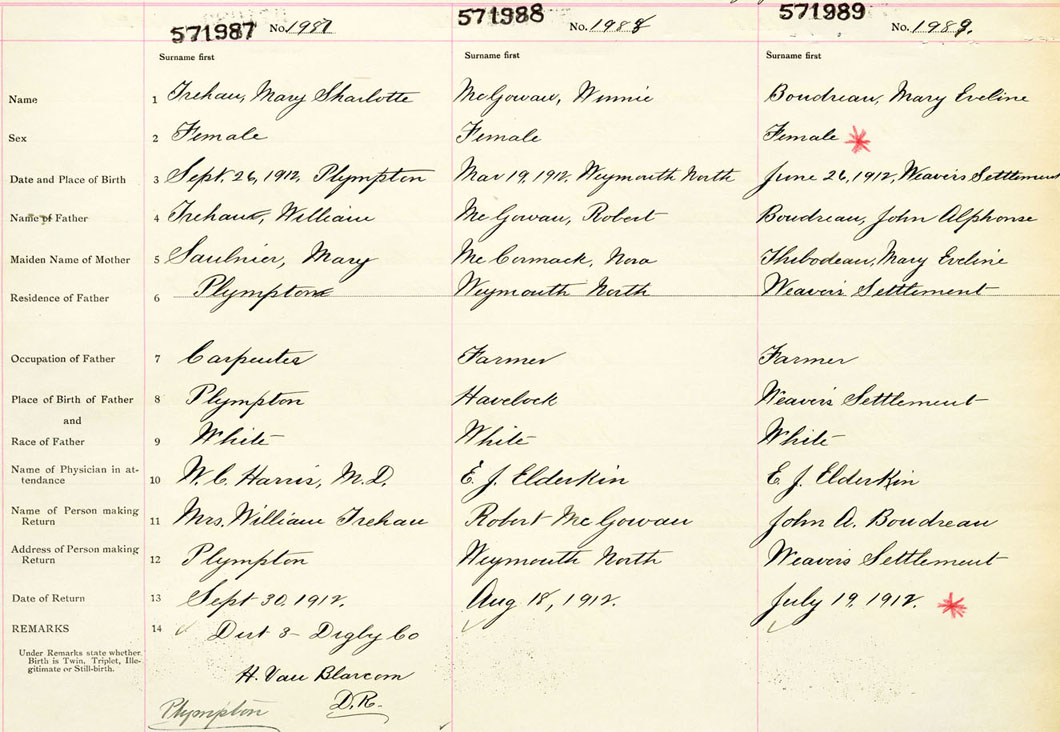 571987 No. 1987 571988 No. 1988 571989 No. 1989.
Surname first Surname first Surname first
Name 1 Trehan, Mary Sharlotte McGowan, Winnie Boudreau, Mary Eveline
Sex 2 Female Female Female
Date and Place of Birth 3 Sept. 26, 1912, Plympton Mar 19, 1912, Weymouth North June 26, 1912, Weavers Settlement
Name of Father 4 Trehan, William McGowan, Robert Boudreau, John Alphonse
Maiden Name of Mother 5 Saulnier, Mary McCormack, Nora Thibodeau, Mary Eveline
Residence of Father 6 Plympton Weymouth North Weavers Settlement
Occupation of Father 7 Carpenter Farmer Farmer
Place of Birth of Father 8 Plympton Havelock Weavers Settlement
and
Race of Father 9 White White White
Name of Physician in at-
tendance 10 W. C. Harris, M.D. E. J. Elderkin E. J. Elderkin
Name of Person making
Return 11 Mrs. William Trehan Robert McGowan John A. Boudreau
Address of Person making
Return 12 Plympton Weymouth North Weavers Settlement
Date of Return 13 Sept 30, 1912. Aug 18, 1912. July 19, 1912.
REMARKS 14 Dist 3 - Digby Co
Under Remarks state whether
Birth is Twin, Triplet, Ille-
gitimate or Still-birth.
H. Van Blarcom
D.R.
Plympton